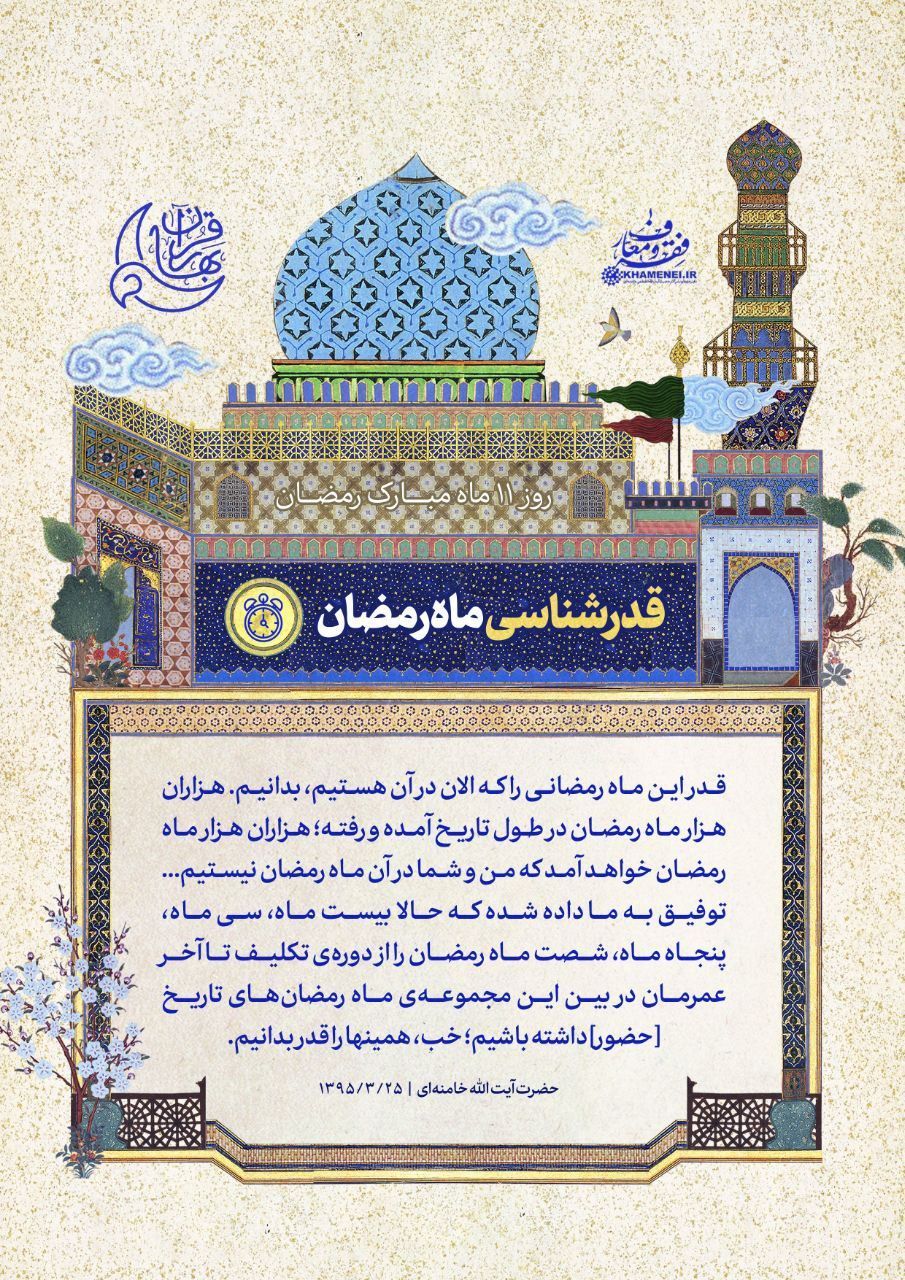 بهار قرآن
فقه و معارف
KHAMENEI.IR
روز ۱۱ ماه مبارک رمضان
قدرشناسی ماه رمضان
قدر این ماه رمضانی را که الان در آن هستیم، بدانیم. هزاران
هزار ماه رمضان در طول تاریخ آمده و رفته؛ هزاران هزار ماه
رمضان خواهد آمد که من و شما در آن ماه رمضان نیستیم...
توفیق به ما داده شده که حالا بیست ماه، سی ماه،
پنجاه ماه، شصت ماه رمضان را از دوره‌ی تکلیف تا آخر
عمرمان در بین این مجموعه‌ی ماه رمضان‌های تاریخ
[حضور] داشته باشیم؛ خب، همینها را قدر بدانیم.
حضرت آیت الله خامنه‌ای | ۱۳۹۵/۳/۲۵